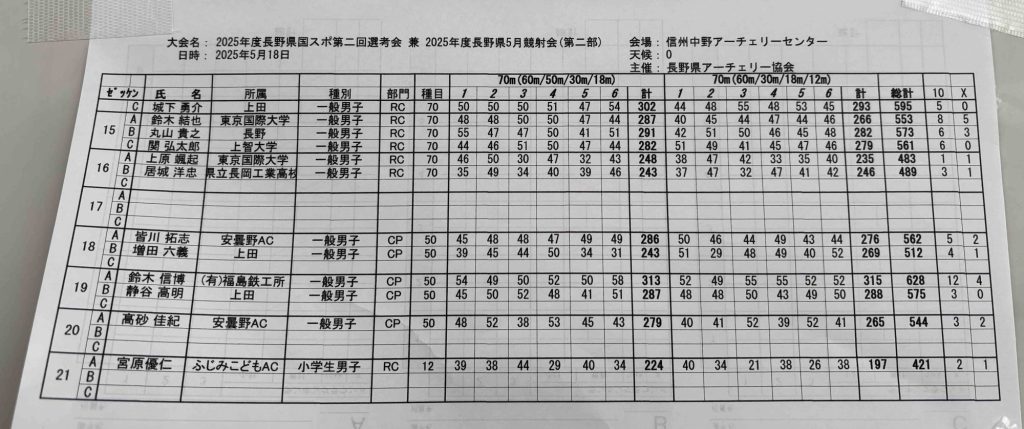 大会名： 2025年度長野県国スポ第二回選考会 兼 2025年度長野県5月競射会(第二部) 会場： 信州中野アーチェリーセンター
日時： 2025年5月18日 天候： 0
主催： 長野県アーチェリー協会
70m(60m/50m/30m/18m) 70m(60m/30m/18m/12m)
ｾﾞｯｹﾝ 氏 名 所属 種別 部門 種目 1 2 3 4 5 6 計 1 2 3 4 5 6 計 総計 10 X
C 城下 勇介 上田 一般男子 RC 70 50 50 50 51 47 54 302 44 48 55 48 53 45 293 595 5 0
15 A 鈴木 結也 東京国際大学 一般男子 RC 70 48 48 50 50 47 44 287 40 45 44 47 44 46 266 553 8 5
B 丸山 貴之 長野 一般男子 RC 70 55 47 47 50 41 51 291 42 51 50 46 45 48 282 573 6 3
C 関 弘太郎 上智大学 一般男子 RC 70 44 46 51 50 47 44 282 51 49 41 45 47 46 279 561 6 0
16 A 上原 颯起 東京国際大学 一般男子 RC 70 46 50 30 47 32 43 248 38 47 42 33 35 40 235 483 1 1
B 居城 洋忠 県立長岡工業高校 一般男子 RC 70 35 49 34 40 39 46 243 37 47 32 47 41 42 246 489 3 1
C
17 A
B
C
18 A 皆川 拓志 安曇野AC 一般男子 CP 50 45 48 48 47 49 49 286 50 46 44 49 43 44 276 562 5 2
B 増田 六義 上田 一般男子 CP 50 39 44 45 50 34 31 243 51 29 48 49 40 52 269 512 4 1
C
19 A 鈴木 信博 (有)福島鉄工所 一般男子 CP 50 54 49 50 52 50 58 313 52 49 55 55 52 52 315 628 12 4
B 静谷 高明 上田 一般男子 CP 50 45 50 52 48 41 51 287 48 48 50 43 49 50 288 575 3 0
C
20 A 高砂 佳紀 安曇野AC 一般男子 CP 50 48 52 38 53 45 43 279 40 41 52 39 52 41 265 544 3 2
B
C
21 A 宮原優仁 ふじみこどもAC 小学生男子 RC 12 39 38 44 29 40 34 224 40 34 21 38 26 38 197 421 2 1
B
C